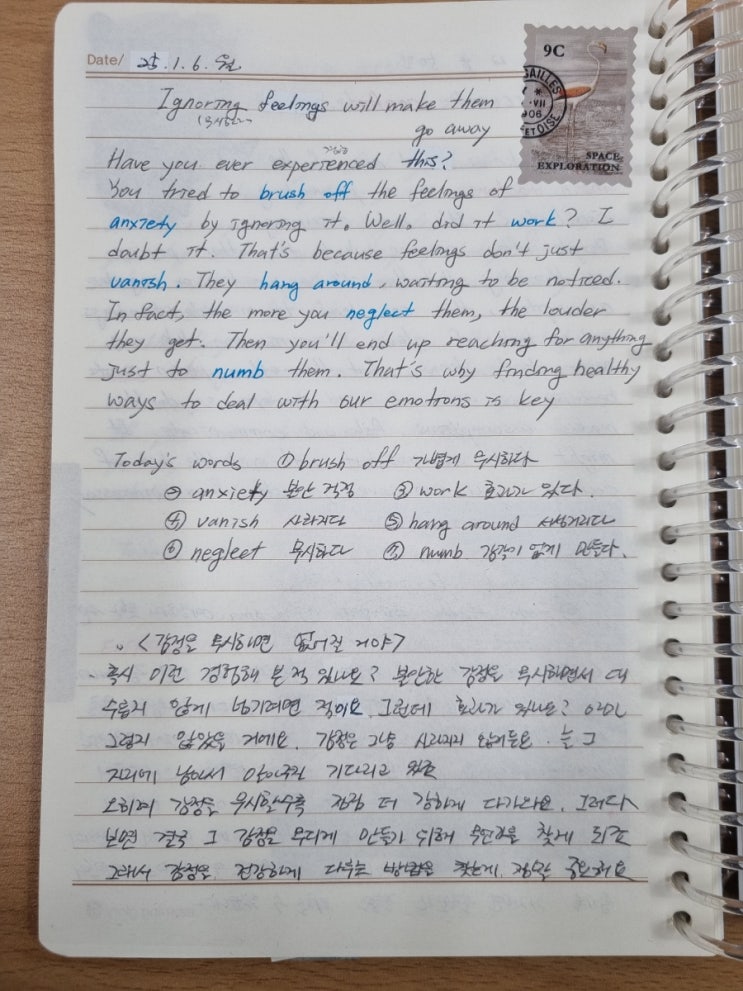 Date/ 25. 1. 6. 월
9C
SAILLES
VII
906
ET OISE
SPACE
EXPLORATION
Ignoring feelings will make them
go away
Have you ever experienced this?
You tried to brush off the feelings of
anxiety by ignoring it. Well. did it work? I
doubt it. That's because feelings don't just
vanish. They hang around, waiting to be noticed.
In fact, the more you neglect them, the louder
they get. Then you'll end up reaching for anything
just to numb them. That's why finding healthy
ways to deal with our emotions is key
Today's words ① brush off 가볍게 무시하다
② anxiety 불안 걱정 ③ work 효과가 있다.
④ vanish 사라지다 ⑤ hang around 서성거리다
⑥ neglect 무시하다 ⑦ numb 감각이 없게 만들다.
<감정을 무시하면 없어질 거야>
혹시 이런 경험해 본 적 있나요? 불안한 감정을 무시하면서 대
수롭지 않게 넘기려던 적이요. 그런데 효과가 있나요? 아마
그렇지 않았을 거에요. 감정은 그냥 사라지지 않거든요. 늘 그
자리에 남아서 기다리고 있죠
오히려 감정을 무시할수록 점점 더 강하게 다가와요. 그러다
보면 결국 그 감정을 무디게 만들기 위해 무언가를 찾게 되죠
그래서 감정을 건강하게 다루는 방법을 찾는게 정말 중요해요